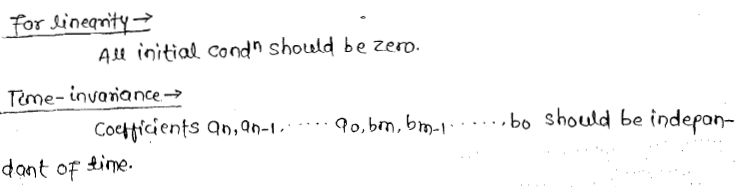 For linearity →
All initial condⁿ should be zero.
Time-invariance →
Coefficients an, an-1, ...... a0, bm, bm-1 ......, b0 should be indepan-
dant of time.